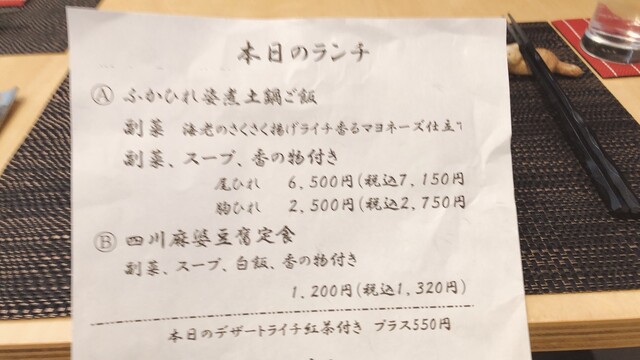 本日のランチ
Ⓐ ふかひれ姿煮土鍋ご飯
副菜 海老のさくさく揚げライチ香るマヨネーズ仕立
副菜、スープ、香の物付き
尾ひれ 6,500円(税込7,150円
胸ひれ 2,500円(税込2,750円
Ⓑ 四川麻婆豆腐定食
副菜、スープ、白飯、香の物付き
1,200円(税込1,320円)
本日のデザートライチ紅茶付き プラス550円